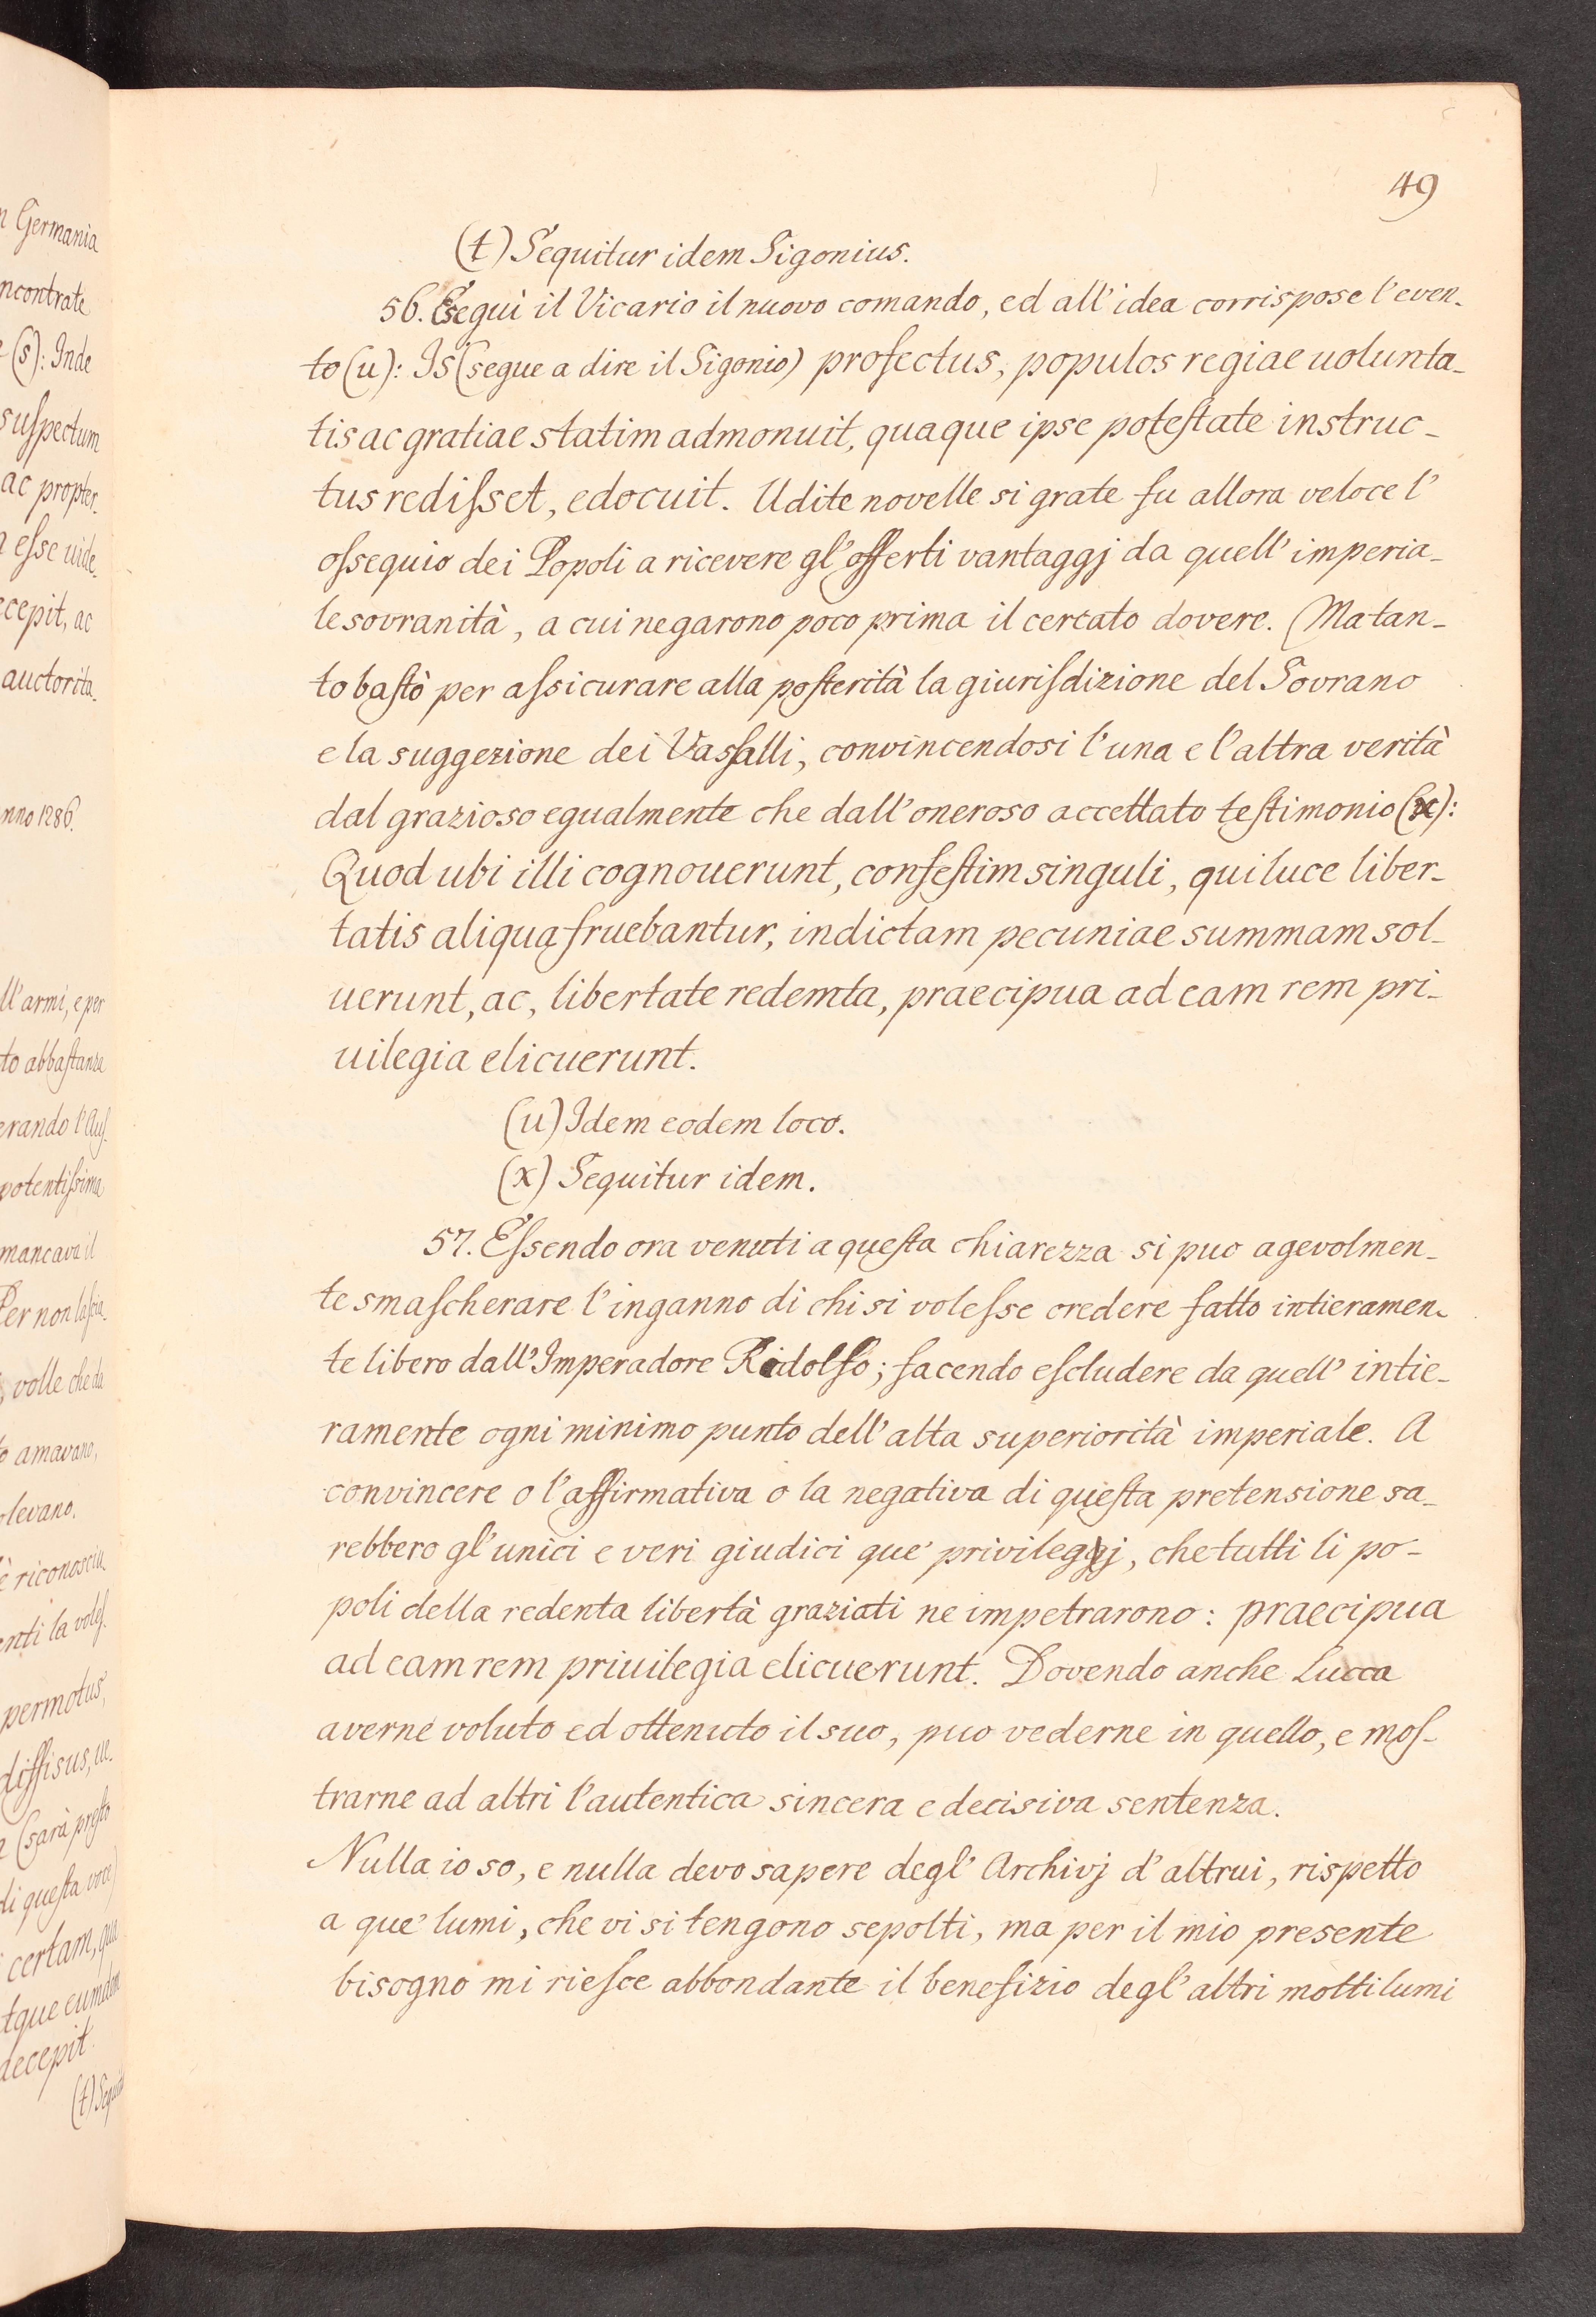 49
(t) Sequitur idem Sigonius.
56. Eseguì il Vicario il nuovo comando, ed all' idea corrispose l' even-
to (u): Is (segue a dire il Sigonio) profectus, populos regiae uolunta-
tis ac gratiae statim admonuit, quaque ipse potestate instruc-
tus redisset, edocuit. Udite novelle si grate fu allora veloce l'
ossequio dei Popoli a ricevere gl' offerti vantaggj da quell' imperia-
le sovranità, a cui negarono poco prima il cercato dovere. Ma tan-
to bastò per assicurare alla posterità la giurisdizione del Sovrano
e la suggezione dei Vassalli, convincendosi l' una e l' altra verità
dal grazioso egualmente che dall' oneroso accettato testimonio (x):
Quod ubi illi cognouerunt, confestim singuli, qui luce liber-
tatis aliqua fruebantur, indictam pecuniae summam sol-
uerunt, ac, libertate redemta, praecipua ad eam rem pri-
uilegia elicuerunt.
(u) Idem eodem loco.
(x) Sequitur idem.
57. Essendo ora venuti a questa chiarezza si puo agevolmen-
te smascherare l' inganno di chi si volesse credere fatto intieramen-
te libero dall' Imperadore Ridolfo; facendo escludere da quell' intie-
ramente ogni minimo punto dell' alta superiorità imperiale. A
convincere o l' affirmativa o la negativa di questa pretensione sa-
rebbero gl' unici e veri giudici que' privileggj, che tutti li po-
poli della redenta libertà graziati ne impetrarono: praecipua
ad eam rem priuilegia elicuerunt. Dovendo anche Lucca
averne voluto ed ottenuto il suo, puo vederne in quello, e mos-
trarne ad altri l' autentica sincera e decisiva sentenza.
Nulla io so, e nulla devo sapere degl' Archivj d' altrui, rispetto
a que' lumi, che vi si tengono sepolti, ma per il mio presente
bisogno mi riesce abbondante il benefizio degl' altri molti lumi